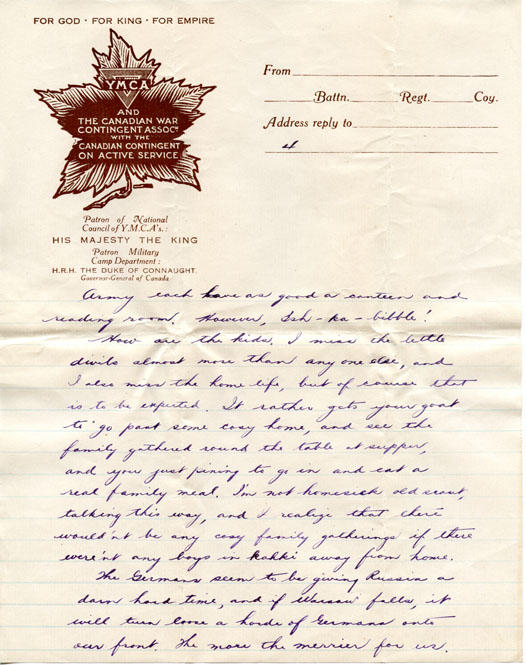 FOR GOD · FOR KING · FOR EMPIRE
YMCA
AND
THE CANADIAN WAR
CONTINGENT ASSOCN
WITH THE
CANADIAN CONTINGENT
ON ACTIVE SERVICE
Patron of National
Council of Y.M.C.A's.:
HIS MAJESTY THE KING
Patron Military
Camp Department:
H.R.H. THE DUKE OF CONNAUGHT.
Governor-General of Canada
From
Battn. Regt. Coy.
Address reply to
4
Army each have as good a canteen and
reading room. However, Ish-ka-bibble!
How are the kids. I miss the little
divils almost more than any one else, and
I also miss the home life, but of course that
is to be expected. It rather gets your goat
to go past some cosy home, and see the
family gathered round the table at supper,
and you just pining to go in and eat a
real family meal. I'm not homesick old scout,
talking this way, and I realize that there
would'nt be any cosy family gatherings if there
were'nt any boys in kahki away from home.
The Germans seem to be giving Russia a
darn hard time, and if Warsaw falls, it
will turn loose a horde of Germans onto
our front. The more the merrier for us.